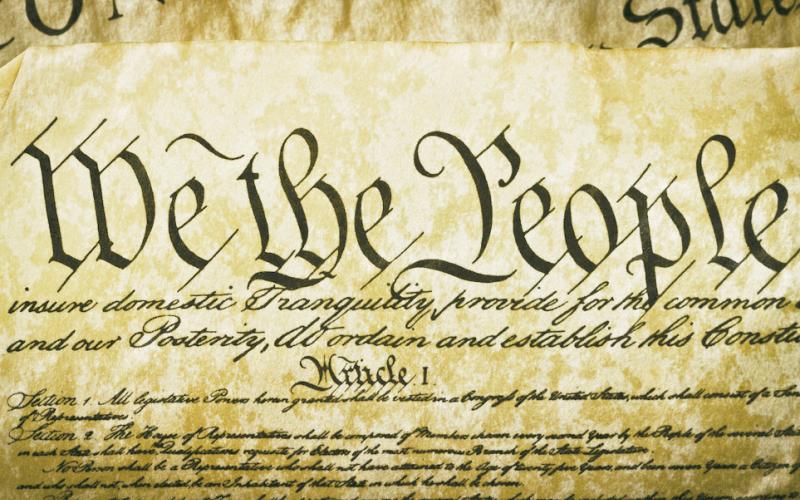 States
We the People
insure domestic Tranquility, provide for the common
and our Posterity, do ordain and establish this Constit
Article I.
Section 1. All legislative Powers herein granted shall be vested in a Congress of the United States, which shall consist of a Sen
of Representatives.
Section 2. The House of Representatives shall be composed of Members chosen every second Year by the People of the several State
in each State shall have Qualifications requisite for Electors of the most numerous Branch of the State Legislature.
No Person shall be a Representative who shall not have attained to the Age of twenty five Years, and been seven Years a Citizen of
and who shall not, when elected, be an Inhabitant of that State in which he shall be chosen.